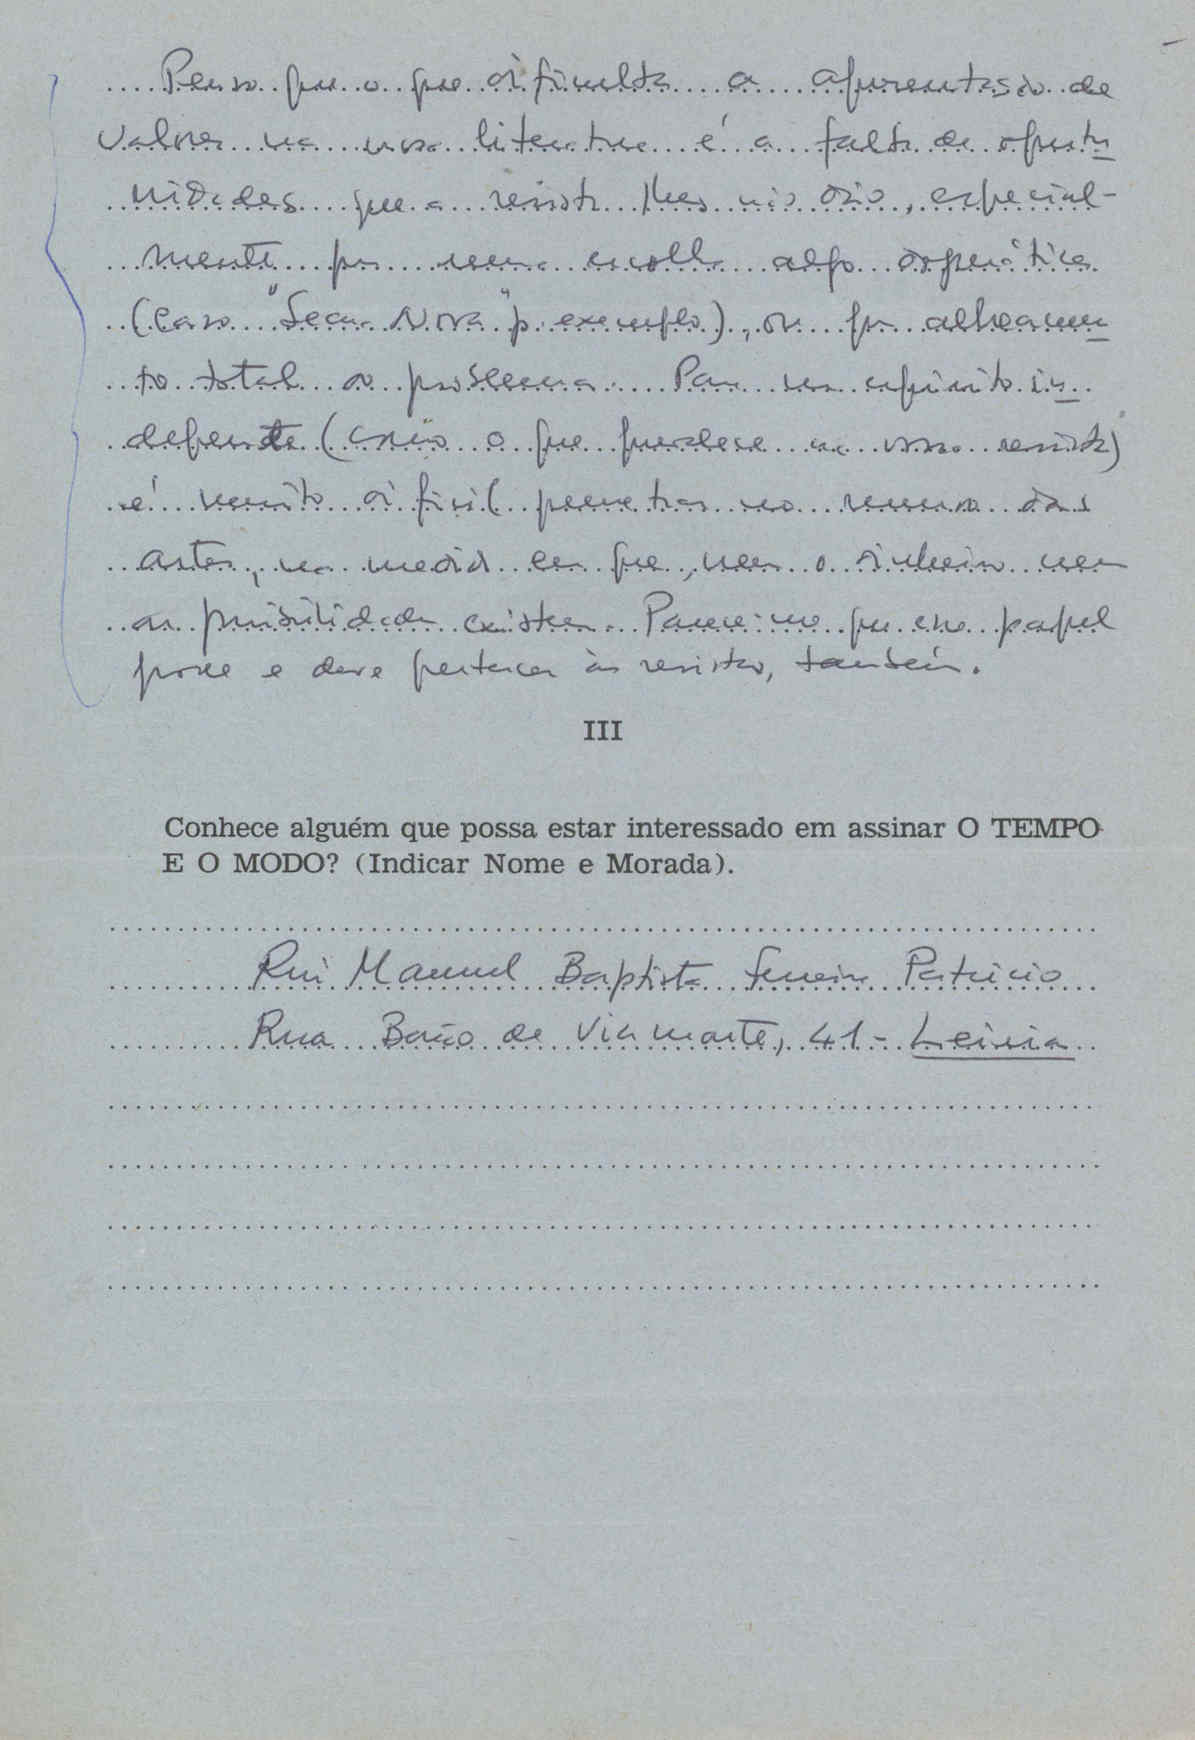 Penso que o que dificulta a apresentação de
valores na nossa literatura é a falta de oportu
nidades que a revista lhes não dão, especial-
mente por uma escolha algo dogmática
(Caso "Seara Nova" p. exemplo), ou por alheamen
to total do problema. Para um espírito in
dependente (como o que prevalece na vossa revista)
é muito difícil penetrar no mundo das
artes, na medida em que, nem o dinheiro nem
as possibilidades existem. Parece-me que esse papel
pode e deve pertencer às revistas, também.
III
Conhece alguém que possa estar interessado em assinar O TEMPO
E O MODO? (Indicar Nome e Morada).
Rui Manuel Baptista Ferreira Patrício
Rua Barão de Viamonte, 41 - Leiria